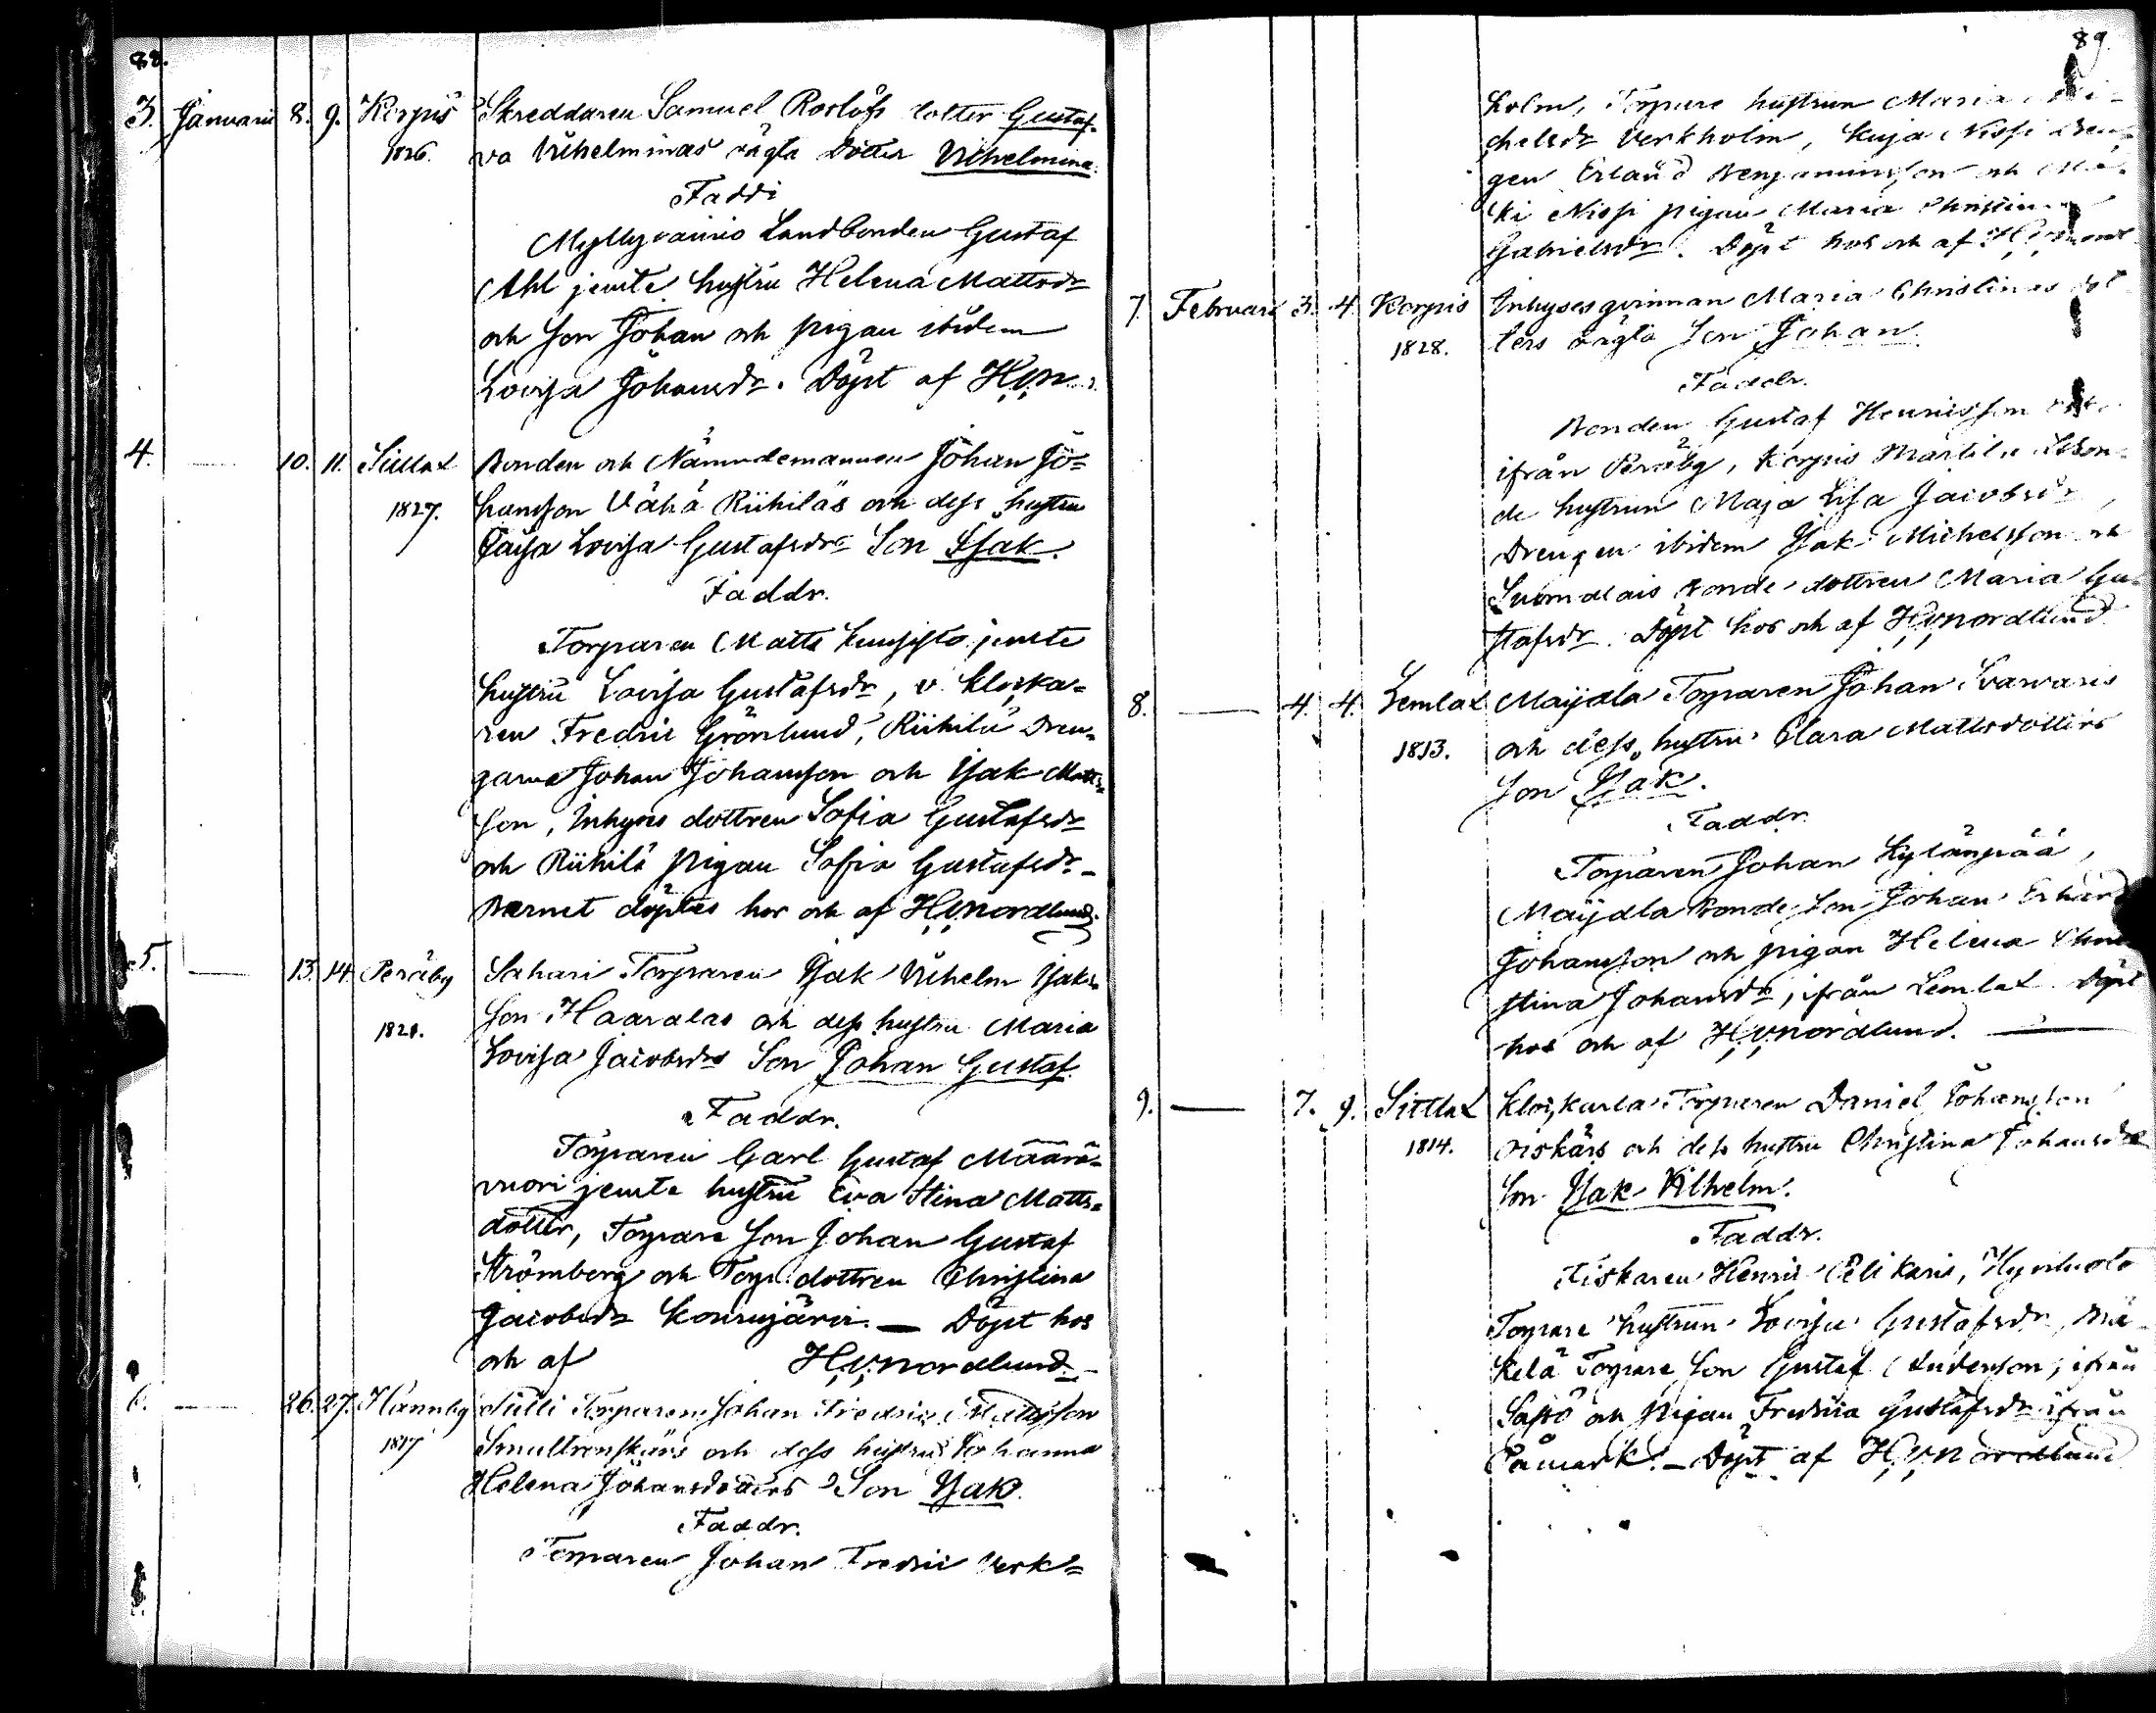 88.
3. Januarii 8. 9. Korpis Skreddaren Samuel Roslöfs dotter Gustaf-
1826. va Vilhelminas oägta Dotter Vilhelmina.
Faddr
Myllyrainio Landbonden Gustaf
Ahl jemte hustru Helena Mattsdr
och Son Johan och pigan ibidem
Lovisa Johansdr. Döpt af H.V.N.
4. — 10. 11. Sittlax Bonden och Nämndemannen Johan Jo=
1827. hansson Vähä Riihiläs och dess hustru
Caisa Lovisa Gustafsdrs Son Isak.
Faddr.
Torparen Matts Kuusisto jemte
hustru Lovisa Gustafsdr, v. klocka=
ren Fredric Grönlund, Riihilä Dren=
garne Johan Johansson och Isak Matts=
son, Inhyses dottren Sofia Gustafsdr
och Riihilä pigan Sofia Gustafsdr. —
Barnet döptes hos och af H.V. Nordlund.
5. — 13. 14. Peräby Sahari Torparen Isak Vilhelm Isaks=
1821. son Haavalas och dess hustru Maria
Lovisa Jacobsdrs Son Johan Gustaf.
Faddr.
Torparen Carl Gustaf Määrä=
vuori jemte hustru Eva Stina Matts=
dotter, Torpare Son Johan Gustaf
Strömberg och Torp. dottren Christina
Jacobsdr Korsujärvi. — Döpt hos
och af H.V. Nordlund. —
6. — 26. 27. Hannby Tulli Torparen Johan Fredric Mattsson
1817 Smultronskärs och dess hustru Johanna
Helena Johansdotters Son Isak.
Faddr.
Torparen Johan Fredric Verk=
89.
holm, Torpare hustrun Maria Mi-
chelsdr Verkholm, Kuja Nissi Dren=
gen Erland Benjaminsson och Mä-
ki Nissi pigan Maria Christina
Gabrielsdr. Döpt hos och af H.V. Nord
7. Februarii 3. 4. Korpis Inhysesqvinnan Maria Christinas dot
1828. ters oägta Son Johan.
Faddr.
Bonden Gustaf Henricsson
ifrån Peräby, Korpis Märtilä Lbon=
de hustrun Maja Lisa Jacobsdr,
Drengen ibidem Isak Michelsson och
Suomalais Bonde dottren Maria Gu=
stafsdr. Döpt hos och af H.V. Nordlund
8. — 4. 4. Lemlax Maijdla Torparen Johan Svarvars
1813. och dess hustru Clara Mattsdotters
Son Isak.
Faddr.
Torparen Johan Kylänpää,
Maijdla Bonde Son Johan Erhard
Johansson och pigan Helena Chri
stina Johansdr, ifrån Lemlax. Döpt
hos och af H.V. Nordlund. —
9. — 7. 9. Sittlax Klockarla Torparen Daniel Johansson
1814. och dess hustru Christina Johansdrs
Son Isak Vilhelm.
Faddr.
Fiskaren Henric Pelikans,
Torpare hustrun Lovisa Gustafsdr, Mä=
kelä Torpare Son Gustaf Andersson, ifrån
och pigan Fredrica Gustafsdr ifrån
Påmark. — Döpt af H.V. Nordlund